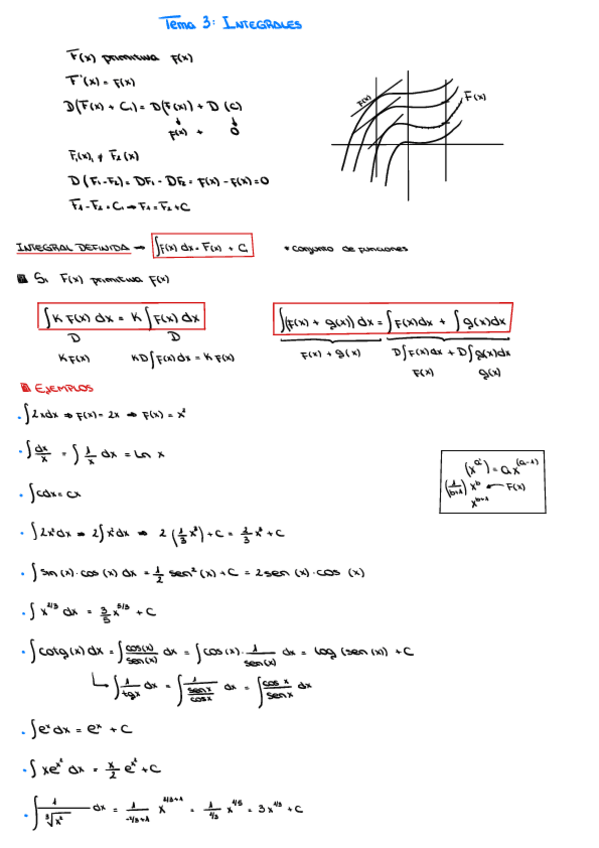 Tema 3: INTEGRALES
F(x) primitiva f(x)
F'(x) = f(x)
D(F(x) + C) = D(F(x)) + D (C)
↓ ↓
f(x) + 0
F₁(x), F₂(x)
D (F₁-F₂) = DF₁ - DF₂ = f(x) - f(x) = 0
F₁ - F₂ = C₁ → F₁ = F₂ + C
F(x)
F(x)
INTEGRAL DEFINIDA → ∫f(x) dx = F(x) + C
* conjunto de funciones
Si F(x) primitiva f(x)
∫K f(x) dx = K ∫f(x) dx
D D
K f(x) KD∫f(x) dx = K f(x)
∫(f(x) + g(x)) dx = ∫f(x)dx + ∫g(x)dx
f(x) + g(x) D∫f(x)dx + D∫g(x)dx
f(x) g(x)
EJEMPLOS
∫2xdx ⇒ f(x) = 2x ⇒ F(x) = x²
∫dx/x = ∫1/x dx = Ln x
(x^a)' = a x^(a-1)
(1/(b+1)) x^b ← f(x)
x^(b+1)
∫cdx = cx
∫2x²dx ⇒ 2∫x²dx ⇒ 2 (1/3 x³) + C = 2/3 x³ + C
∫sin(x)·cos(x) dx = 1/2 sen²(x) + C = 2sen(x)·cos (x)
∫x^(2/3) dx = 3/5 x^(5/3) + C
∫cotg(x) dx = ∫cos(x)/sen(x) dx = ∫cos(x)· 1/sen(x) dx = log (sen(x)) + C
∫1/tgx dx = ∫1/(senx/cosx) dx = ∫cos x/sen x dx
∫eˣ dx = eˣ + C